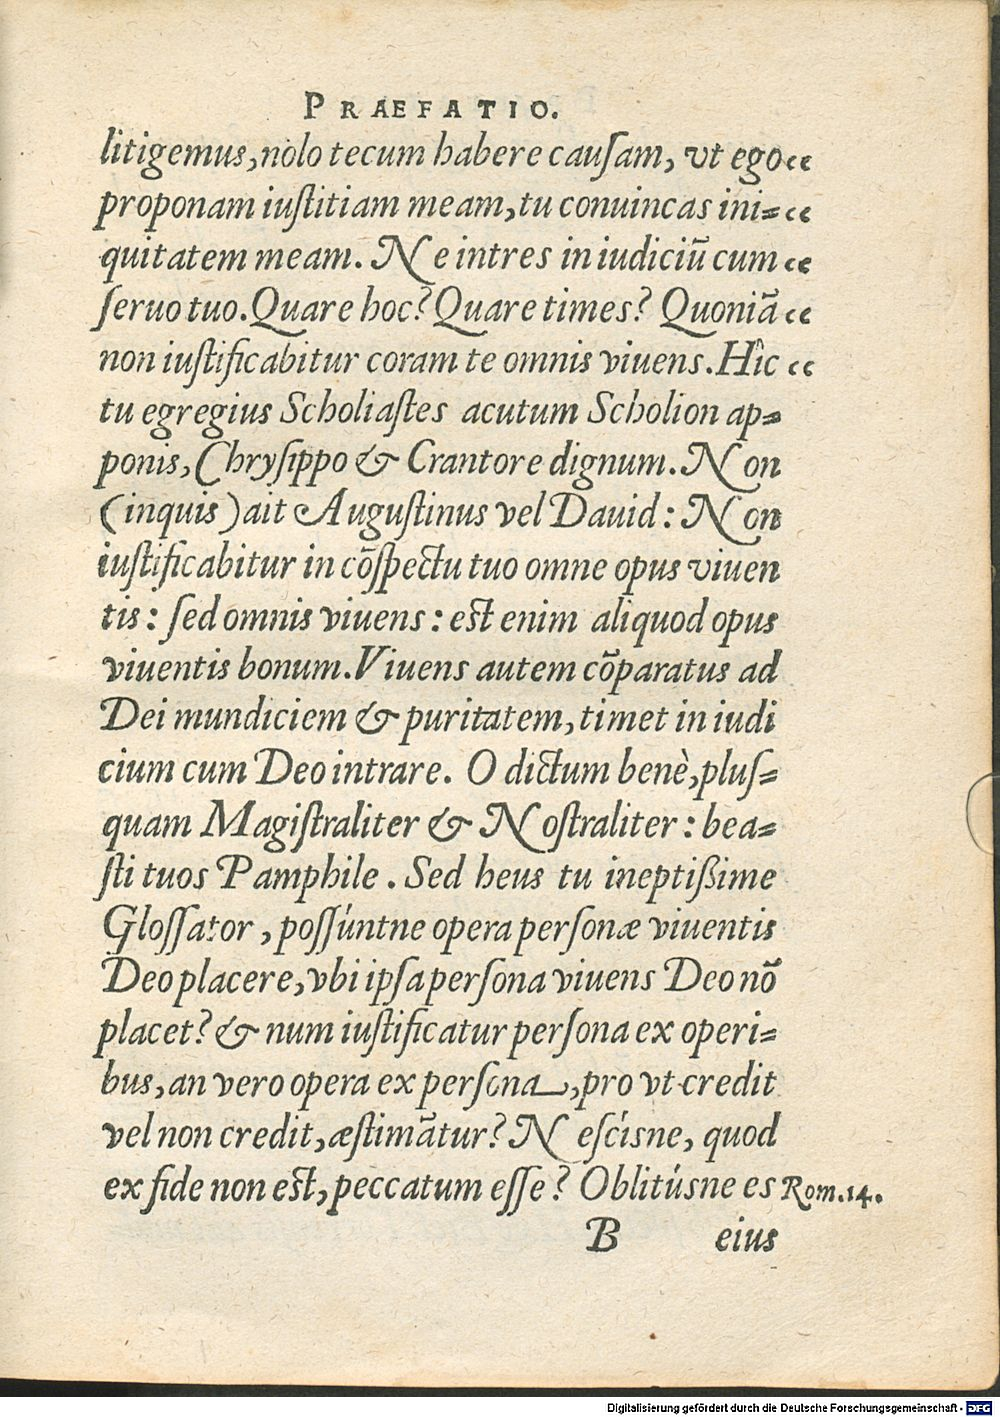 PRAEFATIO.
litigemus, nolo tecum habere cauſam, vt ego “
proponam iuſtitiam meam, tu conuincas ini= “
quitatem meam. Ne intres in iudiciū cum “
ſeruo tuo. Quare hoc? Quare times? Quoniā “
non iuſtificabitur coram te omnis viuens. Hîc “
tu egregius Scholiaſtes acutum Scholion ap=
ponis, Chryſippo & Crantore dignum. Non
(inquis) ait Auguſtinus vel Dauid: Non
iuſtificabitur in cōſpectu tuo omne opus viuen
tis: ſed omnis viuens: eſt enim aliquod opus
viuentis bonum. Viuens autem cōparatus ad
Dei mundiciem & puritatem, timet in iudi
cium cum Deo intrare. O dictum benè, pluſ=
quam Magiſtraliter & Noſtraliter: bea=
ſti tuos Pamphile. Sed heus tu ineptißime
Gloſſator, poſſúntne opera perſonæ viuentis
Deo placere, vbi ipſa perſona viuens Deo nō
placet? & num iuſtificatur perſona ex operi=
bus, an vero opera ex perſona, pro vt credit
vel non credit, æstimātur? Neſcísne, quod
ex fide non eſt, peccatum eſſe? Oblitúsne es Rom.14.
B eius
Digitalisierung gefördert durch die Deutsche Forschungsgemeinschaft - DFG